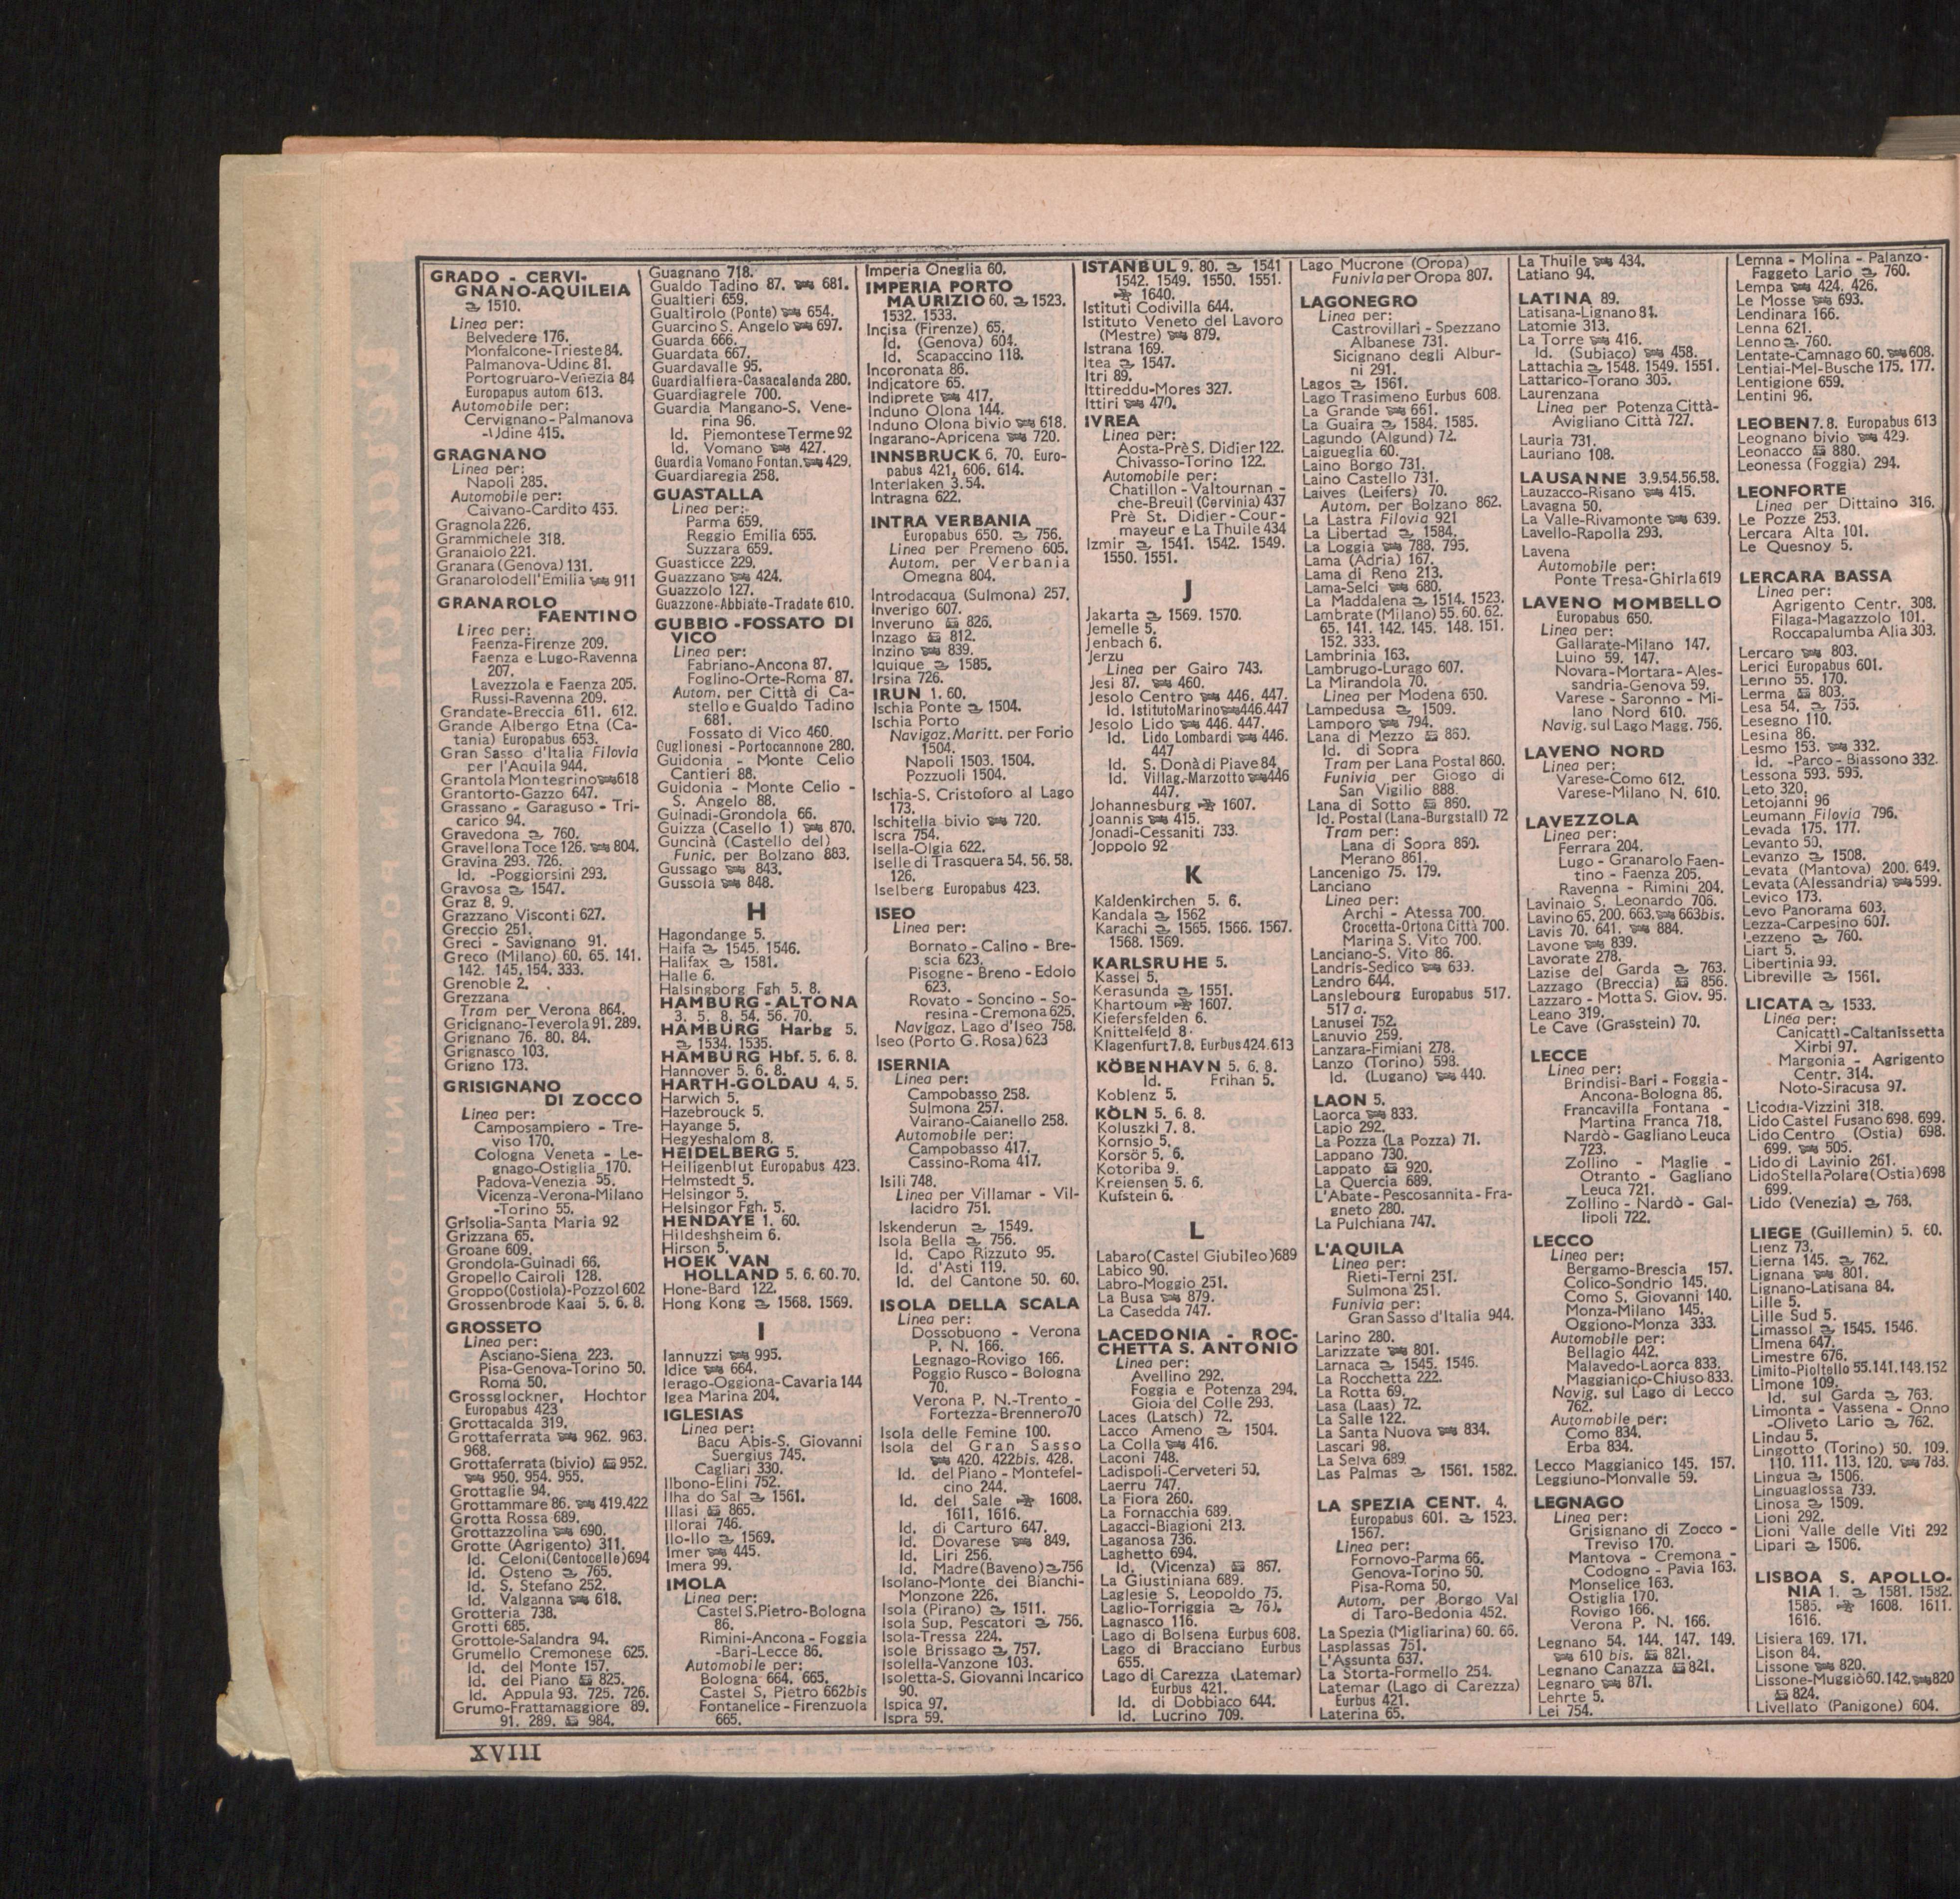 GRADO - CERVI-
GNANO-AQUILEIA
1510.
Linea per:
Belvedere 176.
Monfalcone-Trieste 84.
Palmanova-Udine 81.
Portogruaro-Venezia 84
Europapus autom 613.
Automobile per:
Cervignano-Palmanova
-Udine 415.
GRAGNANO
Linea per:
Napoli 285.
Automobile per:
Caivano-Cardito 435.
Gragnola 226.
Grammichele 318.
Granaiolo 221.
Granara (Genova) 131.
Granarolodell'Emilia 911
GRANAROLO
FAENTINO
Linea per:
Faenza-Firenze 209.
Faenza e Lugo-Ravenna
207.
Lavezzola e Faenza 205.
Russi-Ravenna 209.
Grandate-Breccia 611. 612.
Grande Albergo Etna (Ca-
tania) Europabus 653.
Gran Sasso d'Italia Filovia
per l'Aquila 944.
Grantola Montegrino 618
Grantorto-Gazzo 647.
Grassano - Garaguso - Tri-
carico 94.
Gravedona 760.
Gravellona Toce 126. 804.
Gravina 293. 726.
Id. -Poggiorsini 293.
Gravosa 1547.
Graz 8. 9.
Grazzano Visconti 627.
Greccio 251.
Greci - Savignano 91.
Greco (Milano) 60. 65. 141.
142. 145. 154. 333.
Grenoble 2.
Grezzana
Tram per Verona 864.
Gricignano-Teverola 91. 289.
Grignano 76. 80. 84.
Grignasco 103.
Grigno 173.
GRISIGNANO
DI ZOCCO
Linea per:
Camposampiero - Tre-
viso 170.
Cologna Veneta - Le-
gnago-Ostiglia 170.
Padova-Venezia 55.
Vicenza-Verona-Milano
-Torino 55.
Grisolia-Santa Maria 92
Grizzana 65.
Groane 609.
Grondola-Guinadi 66.
Gropello Cairoli 128.
Groppo(Costiola)-Pozzol 602
Grossenbrode Kaai 5. 6. 8.
GROSSETO
Linea per:
Asciano-Siena 223.
Pisa-Genova-Torino 50.
Roma 50.
Grossglockner, Hochtor
Europabus 423
Grottacalda 319.
Grottaferrata 962. 963.
968.
Grottaferrata (bivio) 952.
950. 954. 955.
Grottaglie 94.
Grottammare 86. 419.422
Grotta Rossa 689.
Grottazzolina 690.
Grotte (Agrigento) 311.
Id. Celoni(Centocelle)694
Id. Osteno 765.
Id. S. Stefano 252.
Id. Valganna 618.
Grotteria 738.
Grotti 685.
Grottole-Salandra 94.
Grumello Cremonese 625.
Id. del Monte 157.
Id. del Piano 825.
Id. Appula 93. 725. 726.
Grumo-Frattamaggiore 89.
91. 289. 984.
Guagnano 718.
Gualdo Tadino 87. 681.
Gualtieri 659.
Gualtirolo (Ponte) 654.
Guarcino S. Angelo 697.
Guarda 666.
Guardata 667.
Guardavalle 95.
Guardialfiera-Casacalenda 280.
Guardiagrele 700.
Guardia Mangano-S. Vene-
rina 96.
Id. Piemontese Terme 92
Id. Vomano 427.
Guardia Vomano Fontan. 429.
Guardiaregia 258.
GUASTALLA
Linea per:
Parma 659.
Reggio Emilia 655.
Suzzara 659.
Guasticce 229.
Guazzano 424.
Guazzolo 127.
Guazzone-Abbiate-Tradate 610.
GUBBIO -FOSSATO DI
VICO
Linea per:
Fabriano-Ancona 87.
Foglino-Orte-Roma 87.
Autom. per Città di Ca-
stello e Gualdo Tadino
681.
Fossato di Vico 460.
Guglionesi - Portocannone 280.
Guidonia - Monte Celio
Cantieri 88.
Guidonia - Monte Celio -
S. Angelo 88.
Guinadi-Grondola 66.
Guizza (Casello 1) 870.
Guncinà (Castello del)
Funic. per Bolzano 883.
Gussago 843.
Gussola 848.
H
Hagondange 5.
Haifa 1545. 1546.
Halifax 1581.
Halle 6.
Halsingborg Fgh 5. 8.
HAMBURG - ALTONA
3. 5. 8. 54. 56. 70.
HAMBURG Harbg 5.
1534. 1535.
HAMBURG Hbf. 5. 6. 8.
Hannover 5. 6. 8.
HARTH-GOLDAU 4. 5.
Harwich 5.
Hazebrouck 5.
Hayange 5.
Hegyeshalom 8.
HEIDELBERG 5.
Heiligenblut Europabus 423.
Helmstedt 5.
Helsingor 5.
Helsingor Fgh. 5.
HENDAYE 1. 60.
Hildeshsheim 6.
Hirson 5.
HOEK VAN
HOLLAND 5. 6. 60. 70.
Hone-Bard 122.
Hong Kong 1568. 1569.
I
Iannuzzi 995.
Idice 664.
Ierago-Oggiona-Cavaria 144
Igea Marina 204.
IGLESIAS
Linea per:
Bacu Abis-S. Giovanni
Suergius 745.
Cagliari 330.
Ilbono-Elini 752.
Ilha do Sal 1561.
Illasi 865.
Illorai 746.
Ilo-Ilo 1569.
Imer 445.
Imera 99.
IMOLA
Linea per:
Castel S.Pietro-Bologna
86.
Rimini-Ancona - Foggia
-Bari-Lecce 86.
Automobile per:
Bologna 664. 665.
Castel S. Pietro 662bis
Fontanelice - Firenzuola
665.
Imperia Oneglia 60.
IMPERIA PORTO
MAURIZIO 60. 1523.
1532. 1533.
Incisa (Firenze) 65.
Id. (Genova) 604.
Id. Scapaccino 118.
Incoronata 86.
Indicatore 65.
Indiprete 417.
Induno Olona 144.
Induno Olona bivio 618.
Ingarano-Apricena 720.
INNSBRUCK 6. 70. Euro-
pabus 421. 606. 614.
Interlaken 3. 54.
Intragna 622.
INTRA VERBANIA
Europabus 650. 756.
Linea per Premeno 605.
Autom. per Verbania
Omegna 804.
Introdacqua (Sulmona) 257.
Inverigo 607.
Inveruno 826.
Inzago 812.
Inzino 839.
Iquique 1585.
Irsina 726.
IRUN 1. 60.
Ischia Ponte 1504.
Ischia Porto
Navigaz. Maritt. per Forio
1504.
Napoli 1503. 1504.
Pozzuoli 1504.
Ischia-S. Cristoforo al Lago
173.
Ischitella bivio 720.
Iscra 754.
Isella-Olgia 622.
Iselle di Trasquera 54. 56. 58.
126.
Iselberg Europabus 423.
ISEO
Linea per:
Bornato - Calino - Bre-
scia 623.
Pisogne - Breno - Edolo
623.
Rovato - Soncino - So-
resina - Cremona 625.
Navigaz. Lago d'Iseo 758.
Iseo (Porto G. Rosa) 623
ISERNIA
Linea per:
Campobasso 258.
Sulmona 257.
Vairano-Caianello 258.
Automobile per:
Campobasso 417.
Cassino-Roma 417.
Isili 748.
Linea per Villamar - Vil-
lacidro 751.
Iskenderun 1549.
Isola Bella 756.
Id. Capo Rizzuto 95.
Id. d'Asti 119.
Id. del Cantone 50. 60.
ISOLA DELLA SCALA
Linea per:
Dossobuono - Verona
P. N. 166.
Legnago-Rovigo 166.
Poggio Rusco - Bologna
70.
Verona P. N.-Trento -
Fortezza-Brennero 70
Isola delle Femine 100.
Isola del Gran Sasso
420. 422bis. 428.
Id. del Piano - Montefel-
cino 244.
Id. del Sale 1608.
1611. 1616.
Id. di Carturo 647.
Id. Dovarese 849.
Id. Liri 256.
Id. Madre (Baveno) 756
Isolano-Monte dei Bianchi-
Monzone 226.
Isola (Pirano) 1511.
Isola Sup. Pescatori 756.
Isola-Tressa 224.
Isole Brissago 757.
Isolella-Vanzone 103.
Isoletta-S. Giovanni Incarico
90.
Ispica 97.
Ispra 59.
ISTANBUL 9. 80. 1541
1542. 1549. 1550. 1551.
1640.
Istituti Codivilla 644.
Istituto Veneto del Lavoro
(Mestre) 879.
Istrana 169.
Itea 1547.
Itri 89.
Ittireddu-Mores 327.
Ittiri 470.
IVREA
Linea per:
Aosta-Prè S. Didier 122.
Chivasso-Torino 122.
Automobile per:
Chatillon - Valtournan -
che-Breuil (Cervinia) 437
Prè St. Didier - Cour-
mayeur e La Thuile 434
Izmir 1541. 1542. 1549.
1550. 1551.
J
Jakarta 1569. 1570.
Jemelle 5.
Jenbach 6.
Jerzu
Linea per Gairo 743.
Jesi 87. 460.
Jesolo Centro 446. 447.
Id. Istituto Marino 446.447
Jesolo Lido 446. 447.
Id. Lido Lombardi 446.
447
Id. S. Donà di Piave 84
Id. Villag.-Marzotto 446
447.
Johannesburg 1607.
Joannis 415.
Jonadi-Cessaniti 733.
Joppolo 92
K
Kaldenkirchen 5. 6.
Kandala 1562
Karachi 1565. 1566. 1567.
1568. 1569.
KARLSRUHE 5.
Kassel 5.
Kerasunda 1551.
Khartoum 1607.
Kiefersfelden 6.
Knittelfeld 8.
Klagenfurt 7. 8. Eurbus 424. 613
KÖBENHAVN 5. 6. 8.
Id. Frihan 5.
Koblenz 5.
KÖLN 5. 6. 8.
Koluszki 7. 8.
Kornsjo 5.
Korsör 5. 6.
Kotoriba 9.
Kreiensen 5. 6.
Kufstein 6.
L
Labaro(Castel Giubileo)689
Labico 90.
Labro-Moggio 251.
La Busa 879.
La Casedda 747.
LACEDONIA - ROC-
CHETTA S. ANTONIO
Linea per:
Avellino 292.
Foggia e Potenza 294.
Gioia del Colle 293.
Laces (Latsch) 72.
Lacco Ameno 1504.
La Colla 416.
Laconi 748.
Ladispoli-Cerveteri 50.
Laerru 747.
La Fiora 260.
La Fornacchia 689.
Lagacci-Biagioni 213.
Laganosa 736.
Laghetto 694.
Id. (Vicenza) 867.
La Giustiniana 689.
Laglesie S. Leopoldo 75.
Laglio-Torriggia
Lagnasco 116.
Lago di Bolsena Eurbus 608.
Lago di Bracciano Eurbus
655.
Lago di Carezza (Latemar)
Eurbus 421.
Id. di Dobbiaco 644.
Id. Lucrino 709.
Lago Mucrone (Oropa)
Funivia per Oropa 807.
LAGONEGRO
Linea per:
Castrovillari - Spezzano
Albanese 731.
Sicignano degli Albur-
ni 291.
Lagos 1561.
Lago Trasimeno Eurbus 608.
La Grande 661.
La Guaira 1584. 1585.
Lagundo (Algund) 72.
Laigueglia 60.
Laino Borgo 731.
Laino Castello 731.
Laives (Leifers) 70.
Autom. per Bolzano 862.
La Lastra Filovia 921
La Libertad 1584.
La Loggia 788. 795.
Lama (Adria) 167.
Lama di Reno 213.
Lama-Selci 680.
La Maddalena 1514. 1523.
Lambrate (Milano) 55. 60. 62.
65. 141. 142. 145. 148. 151.
152. 333.
Lambrinia 163.
Lambrugo-Lurago 607.
La Mirandola 70.
Linea per Modena 650.
Lampedusa 1509.
Lamporo 794.
Lana di Mezzo 860.
Id. di Sopra
Tram per Lana Postal 860.
Funivia per Giogo di
San Vigilio 888.
Lana di Sotto 860.
Id. Postal (Lana-Burgstall) 72
Tram per:
Lana di Sopra 860.
Merano 861.
Lancenigo 75. 179.
Lanciano
Linea per:
Archi - Atessa 700.
Crocetta-Ortona Città 700.
Marina S. Vito 700.
Lanciano-S. Vito 86.
Landris-Sedico 639.
Landro 644.
Lanslebourg Europabus 517.
517 a.
Lanusei 752.
Lanuvio 259.
Lanzara-Fimiani 278.
Lanzo (Torino) 598.
Id. (Lugano) 440.
LAON 5.
Laorca 833.
Lapio 292.
La Pozza (La Pozza) 71.
Lappano 730.
Lappato 920.
La Quercia 689.
L'Abate-Pescosannita - Fra-
gneto 280.
La Pulchiana 747.
L'AQUILA
Linea per:
Rieti-Terni 251.
Sulmona 251.
Funivia per:
Gran Sasso d'Italia 944.
Larino 280.
Larizzate 801.
Larnaca 1545. 1546.
La Rocchetta 222.
La Rotta 69.
Lasa (Laas) 72.
La Salle 122.
La Santa Nuova 834.
Lascari 98.
La Selva 689.
Las Palmas 1561. 1582.
LA SPEZIA CENT. 4.
Europabus 601. 1523.
1567.
Linea per:
Fornovo-Parma 66.
Genova-Torino 50.
Pisa-Roma 50.
Autom. per Borgo Val
di Taro-Bedonia 452.
La Spezia (Migliarina) 60. 66.
Lasplassas 751.
L'Assunta 637.
La Storta-Formello 254.
Latemar (Lago di Carezza)
Eurbus 421.
Laterina 65.
La Thuile 434.
Latiano 94.
LATINA 89.
Latisana-Lignano 84.
Latomie 313.
La Torre 416.
Id. (Subiaco) 458.
Lattachia 1548. 1549. 1551.
Lattarico-Torano 305.
Laurenzana
Linea per Potenza Città-
Avigliano Città 727.
Lauria 731.
Lauriano 108.
LAUSANNE 3.9.54.56.58.
Lauzacco-Risano 415.
Lavagna 50.
La Valle-Rivamonte 639.
Lavello-Rapolla 293.
Lavena
Automobile per:
Ponte Tresa-Ghirla 619
LAVENO MOMBELLO
Europabus 650.
Linea per:
Gallarate-Milano 147.
Luino 59. 147.
Novara-Mortara-Ales-
sandria-Genova 59.
Varese - Saronno - Mi-
lano Nord 610.
Navig. sul Lago Magg. 756.
LAVENO NORD
Linea per:
Varese-Como 612.
Varese-Milano N. 610.
LAVEZZOLA
Linea per:
Ferrara 204.
Lugo - Granarolo Faen-
tino - Faenza 205.
Ravenna - Rimini 204.
Lavinaio S. Leonardo 706.
Lavino 65. 200. 663. 663bis.
Lavis 70. 641. 884.
Lavone 839.
Lavorate 278.
Lazise del Garda 763.
Lazzago (Breccia) 856.
Lazzaro - Motta S. Giov. 95.
Leano 319.
Le Cave (Grasstein) 70.
LECCE
Linea per:
Brindisi-Bari - Foggia -
Ancona-Bologna 86.
Francavilla Fontana -
Martina Franca 718.
Nardò - Gagliano Leuca
723.
Zollino - Maglie -
Otranto - Gagliano
Leuca 721.
Zollino - Nardò - Gal-
lipoli 722.
LECCO
Linea per:
Bergamo-Brescia 157.
Colico-Sondrio 145.
Como S. Giovanni 140.
Monza-Milano 145.
Oggiono-Monza 333.
Automobile per:
Bellagio 442.
Malavedo-Laorca 833.
Maggianico-Chiuso 833.
Navig. sul Lago di Lecco
762.
Automobile per:
Como 834.
Erba 834.
Lecco Maggianico 145. 157.
Leggiuno-Monvalle 59.
LEGNAGO
Linea per:
Grisignano di Zocco -
Treviso 170.
Mantova - Cremona -
Codogno - Pavia 163.
Monselice 163.
Ostiglia 170.
Rovigo 166.
Verona P. N. 166.
Legnano 54. 144. 147. 149.
610 bis. 821.
Legnano Canazza 821.
Legnaro 871.
Lehrte 5.
Lei 754.
Lemna - Molina - Palanzo-
Faggeto Lario 760.
Lempa 424. 426.
Le Mosse 693.
Lendinara 166.
Lenna 621.
Lenno 760.
Lentate-Camnago 60. 608.
Lentiai-Mel-Busche 175. 177.
Lentigione 659.
Lentini 96.
LEOBEN 7. 8. Europabus 613
Leognano bivio 429.
Leonacco 880.
Leonessa (Foggia) 294.
LEONFORTE
Linea per Dittaino 316.
Le Pozze 253.
Lercara Alta 101.
Le Quesnoy 5.
LERCARA BASSA
Linea per:
Agrigento Centr. 308.
Filaga-Magazzolo 101.
Roccapalumba Alia 303.
Lercaro 803.
Lerici Europabus 601.
Lerino 55. 170.
Lerma 803.
Lesa 54. 755.
Lesegno 110.
Lesina 86.
Lesmo 153. 332.
Id. -Parco - Biassono 332.
Lessona 593. 595.
Leto 320.
Letojanni 96
Leumann Filovia 796.
Levada 175. 177.
Levanto 50.
Levanzo 1508.
Levata (Mantova) 200. 649.
Levata (Alessandria) 599.
Levico 173.
Levo Panorama 603.
Lezza-Carpesino 607.
Lezzeno 760.
Liart 5.
Libertinia 99.
Libreville 1561.
LICATA 1533.
Linea per:
Canicattì-Caltanissetta
Xirbi 97.
Margonia - Agrigento
Centr. 314.
Noto-Siracusa 97.
Licodia-Vizzini 318.
Lido Castel Fusano 698. 699.
Lido Centro (Ostia) 698.
699. 505.
Lido di Lavinio 261.
Lido Stella Polare (Ostia) 698
699.
Lido (Venezia) 768.
LIEGE (Guillemin) 5. 60.
Lienz 73.
Lierna 145. 762.
Lignana 801.
Lignano-Latisana 84.
Lille 5.
Lille Sud 5.
Limassol 1545. 1546.
Limena 647.
Limestre 676.
Limito-Pioltello 55.141.148.152
Limone 109.
Id. sul Garda 763.
Limonta - Vassena - Onno
-Oliveto Lario 762.
Lindau 5.
Lingotto (Torino) 50. 109.
110. 111. 113. 120. 783.
Lingua 1506.
Linguaglossa 739.
Linosa 1509.
Lioni 292.
Lioni Valle delle Viti 292
Lipari 1506.
LISBOA S. APOLLO-
NIA 1. 1581. 1582.
1585. 1608. 1611.
1616.
Lisiera 169. 171.
Lison 84.
Lissone 820.
Lissone-Muggiò 60. 142. 820
824.
Livellato (Panigone) 604.
XVIII